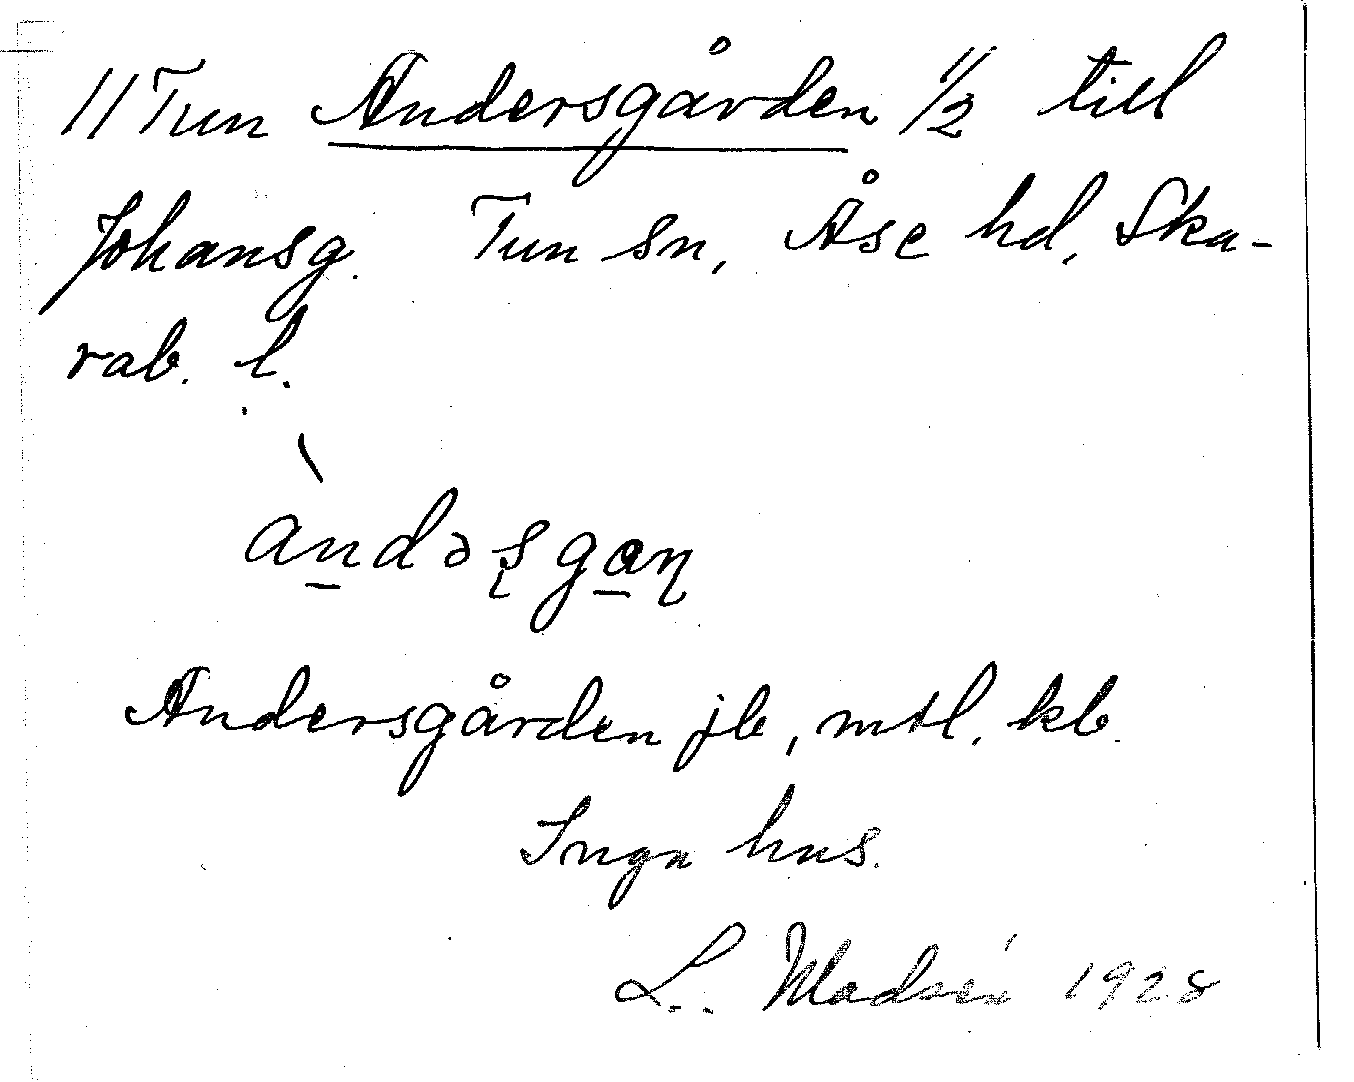 11 Tun Andersgården 1/2 till
Johansg. Tun sn, Åse hd, Ska-
rab. l.
àndəʂgaɳ
Andersgården jb, mtl. kb.
Inga hus.
L. Modsén 1928